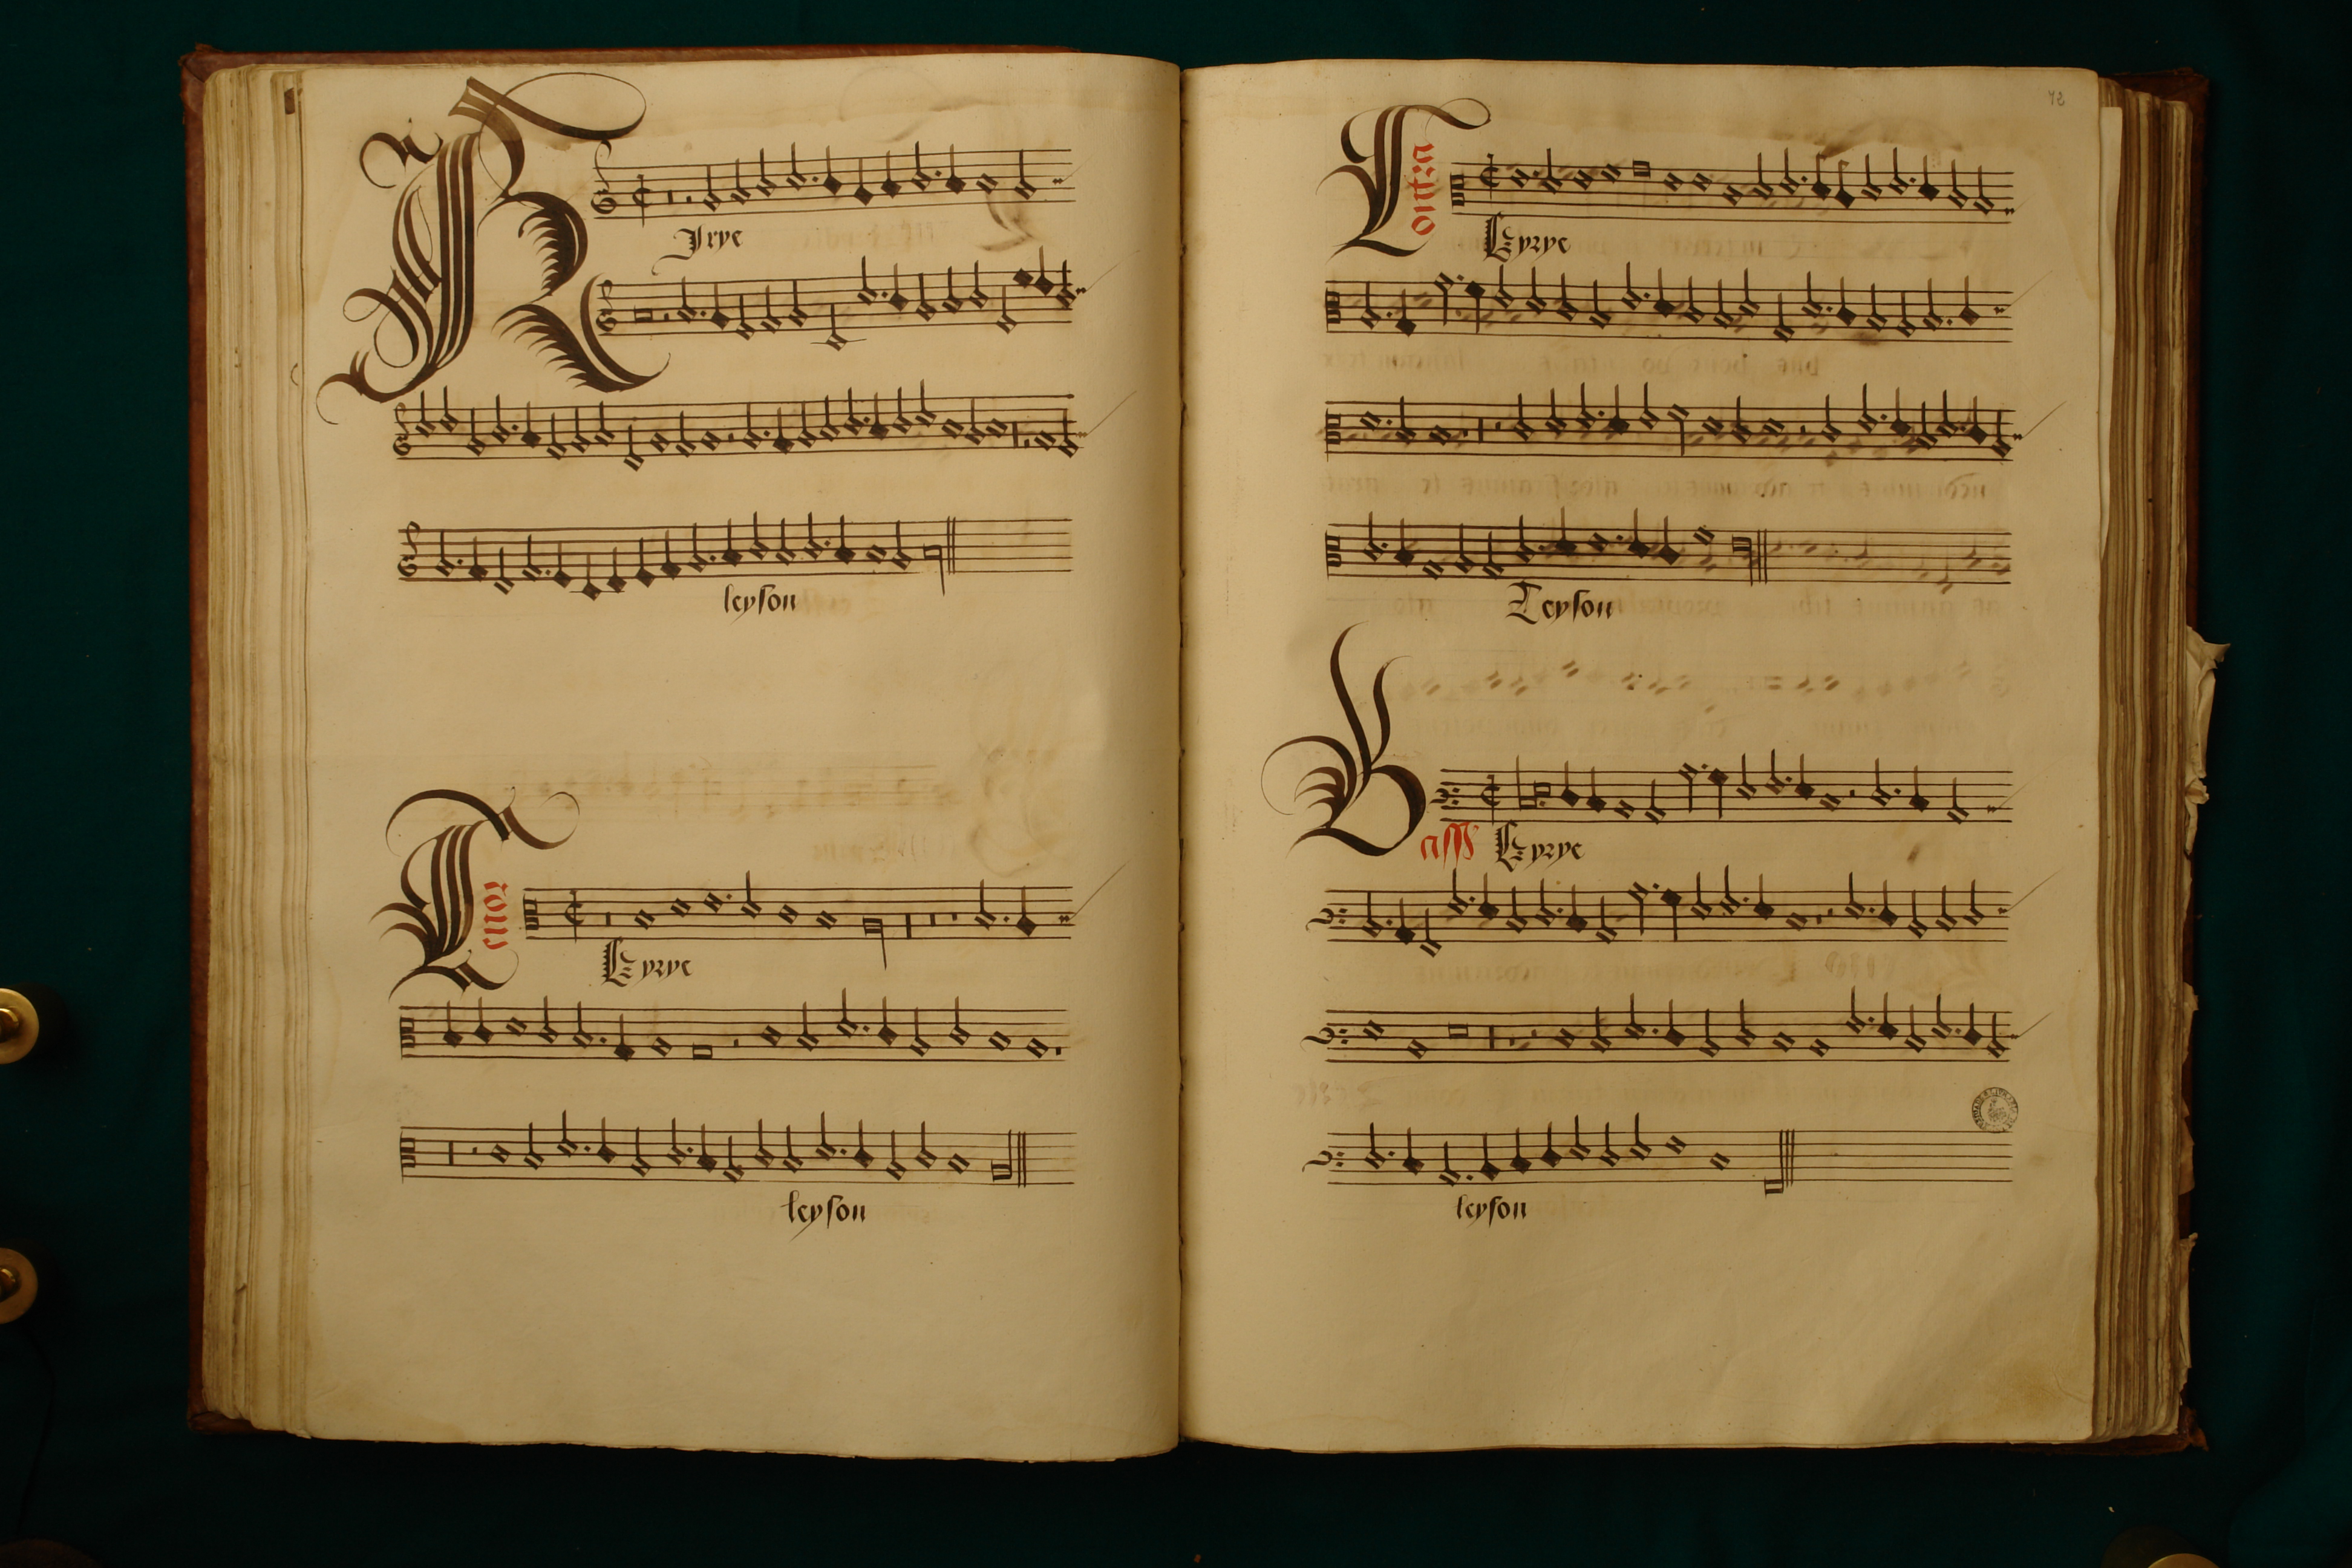 Kyrye
leyson
Tenor
Kyrye
leyson
Contra
Kyrye
Leyson
Bassus
Kyrye
leyson